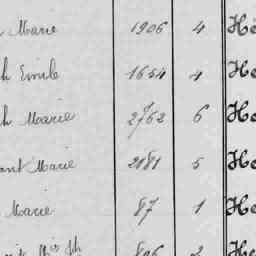 Marie 1906 4 Ho
h Emile 1654 4 Ho
h Marie 2762 6 Ho
ant Marie 2181 5 Ho
Marie 87 1 Ho
806 2 Ho